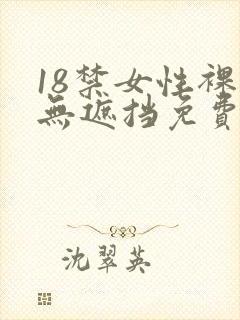 18禁女性裸
無遮挡免費
沈翠英